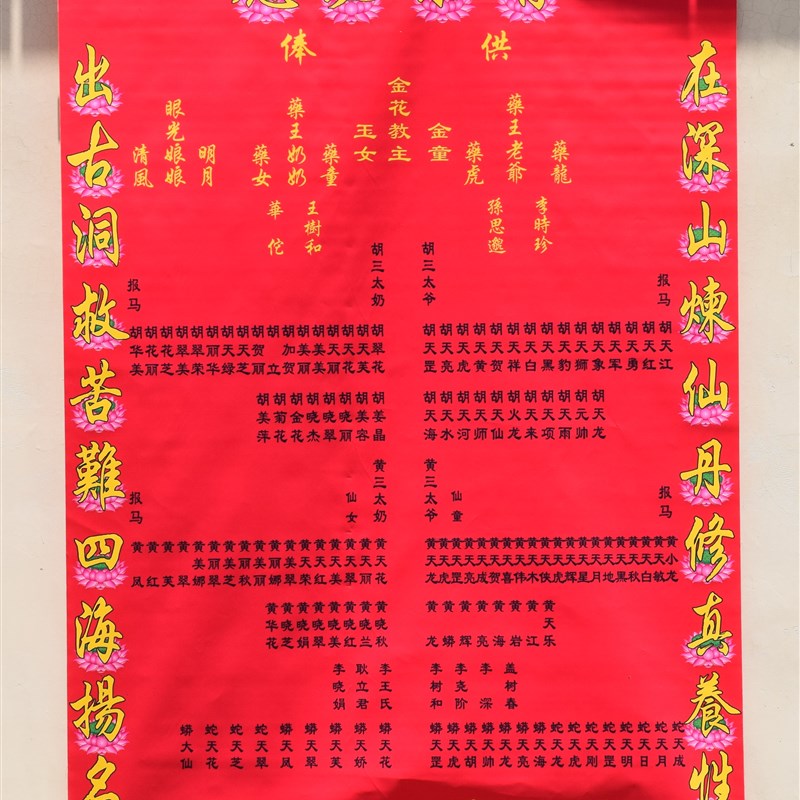 供俸
在深山煉仙丹修真養性
出古洞救苦難四海揚名
金花教主
金童
玉女
藥龍
藥王老爺
藥虎
藥童
藥王奶奶
藥女
明月
眼光娘娘
清風
李時珍
孫思邈
王樹和
華佗
胡三太爷
胡三太奶
报马
报马
胡天江
胡天红
胡天勇
胡天军
胡天象
胡天狮
胡天豹
胡天黑
胡天白
胡天祥
胡天贺
胡天黄
胡天虎
胡天亮
胡天罡
胡翠花
胡天芙
胡天花
胡天丽
胡美美
胡美丽
胡加贺
胡立
胡贺丽
胡天芝
胡天绿
胡丽华
胡翠荣
胡翠美
胡花芝
胡花丽
胡华美
胡天龙
胡元帅
胡天雨
胡天项
胡天来
胡火龙
胡天仙
胡天师
胡天河
胡天水
胡天海
胡姜晶
胡美容
胡晓丽
胡晓翠
胡晓杰
胡金花
胡菊花
胡美萍
黄三太爷
黄三太奶
仙童
仙女
报马
报马
黄小龙
黄天敏
黄天白
黄天秋
黄天黑
黄天地
黄天月
黄天星
黄天辉
黄天虎
黄天侠
黄天木
黄天伟
黄天喜
黄天贺
黄天成
黄天亮
黄天罡
黄天虎
黄天龙
黄天花
黄天丽
黄美翠
黄天美
黄天红
黄天荣
黄美翠
黄丽娜
黄美丽
黄丽秋
黄美芝
黄丽翠
黄美娜
黄翠
黄芙
黄红
黄凤
黄天乐
黄江
黄岩
黄海
黄亮
黄辉
黄蟒
黄龙
黄晓秋
黄晓兰
黄晓红
黄晓美
黄晓翠
黄晓娟
黄晓芝
黄华花
盖树春
李深
李尧阶
李树和
李王氏
耿立君
李晓娟
蛇天成
蛇天月
蛇天日
蛇天明
蛇天罡
蛇天刚
蛇天虎
蛇天龙
蟒天海
蟒天亮
蟒天龙
蟒天帅
蟒天胡
蟒天虎
蟒天罡
蟒天花
蟒天娇
蟒天芙
蟒天翠
蟒天凤
蛇天翠
蛇天芝
蛇天花
蟒大仙